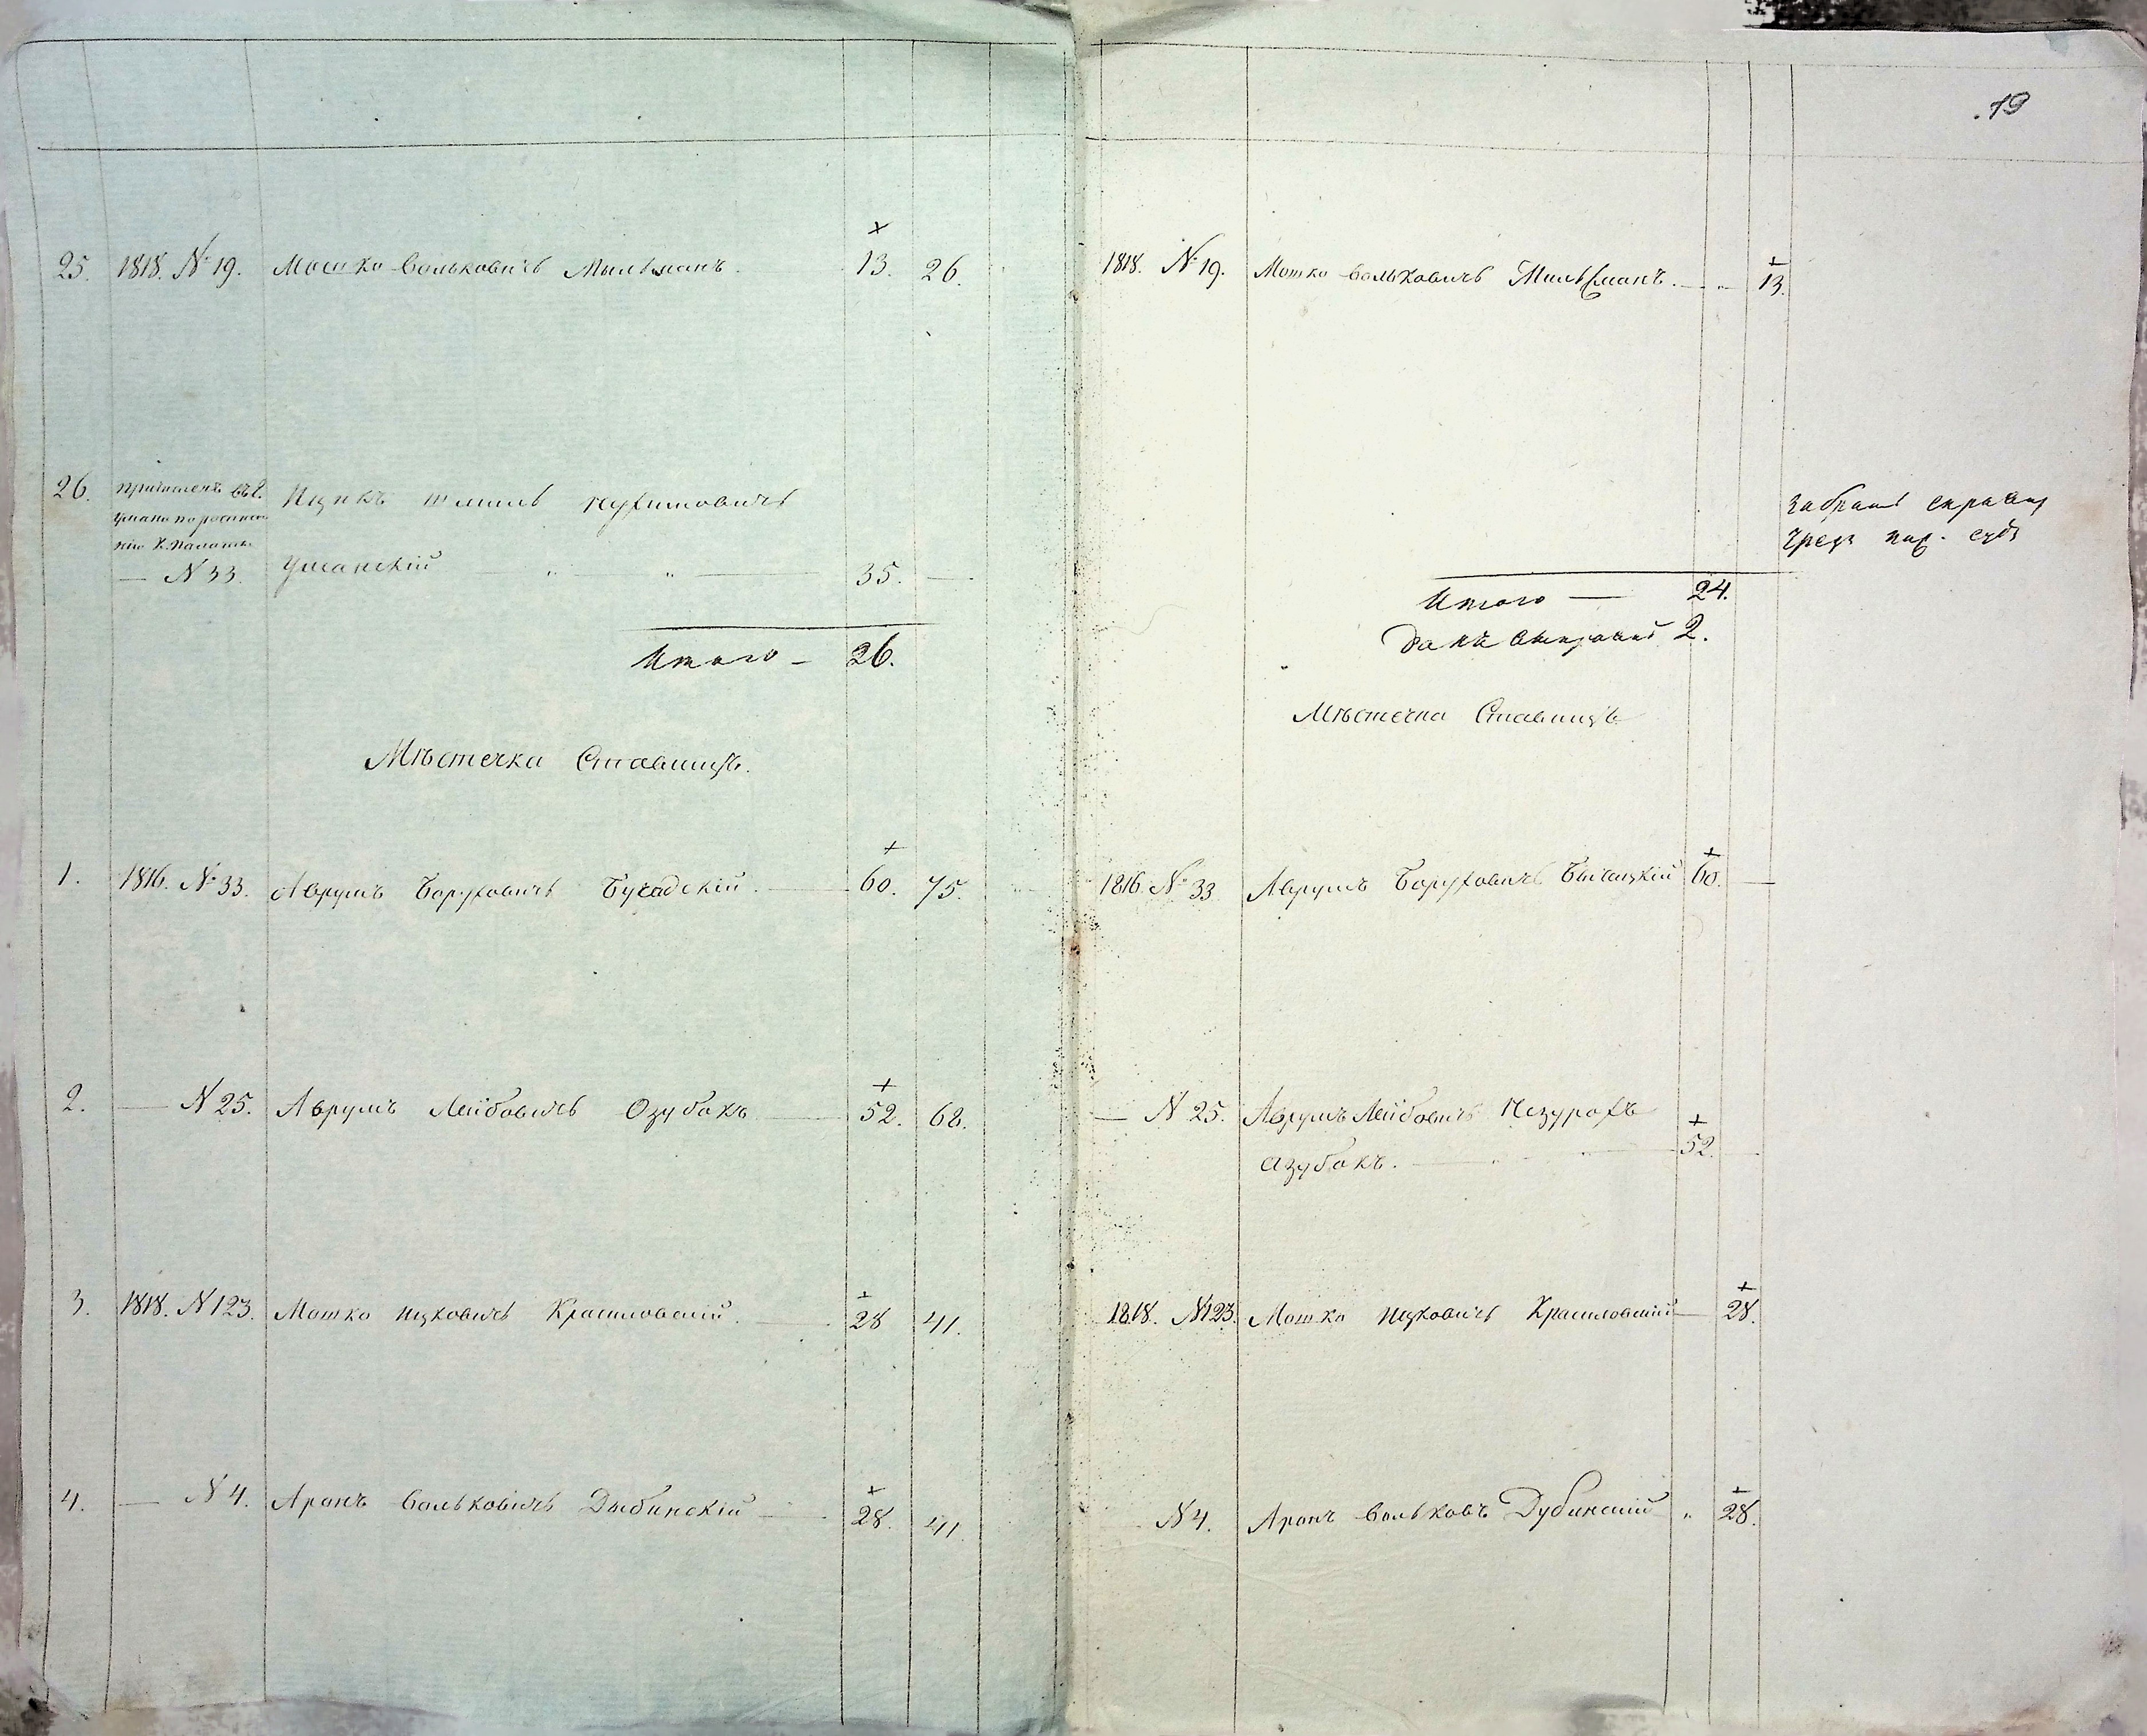 25. 1818. № 19. Мошко Вольковичъ Мильманъ. 13. 26.
26. причисленъ въ г.
Умань по росписа
нію К. Палаты
— N 33.
Ицикъ Шмиль
Уманскій — 35. —
Итого — 26.
Мѣстечка Ставищъ.
1. 1816. № 33. Аврумъ Боруховичъ Бучадскій. 60. 75.
2. — N 25. Аврумъ Лейбовичъ Озубакъ 52. 68.
3. 1818. N 123. Мошко Ицковичъ Красиловскій. 28 41.
4. — N 4. Аронъ Вольковичъ Дыбинскій 28. 41.
19
1818. № 19. Мошко Вольковичъ Мильманъ. 13.
Итого — 24.
2.
Мѣстечка Ставищъ
1816. № 33 Аврумъ Боруховичъ Бычацкій 60.
— N 25. Аврумъ Лейбовичъ
Азубакъ. 52.
1818. N 123. Мошко Ицковичъ Красиловскій 28.
N 4. Аронъ Вольковъ Дубинскій " 28.